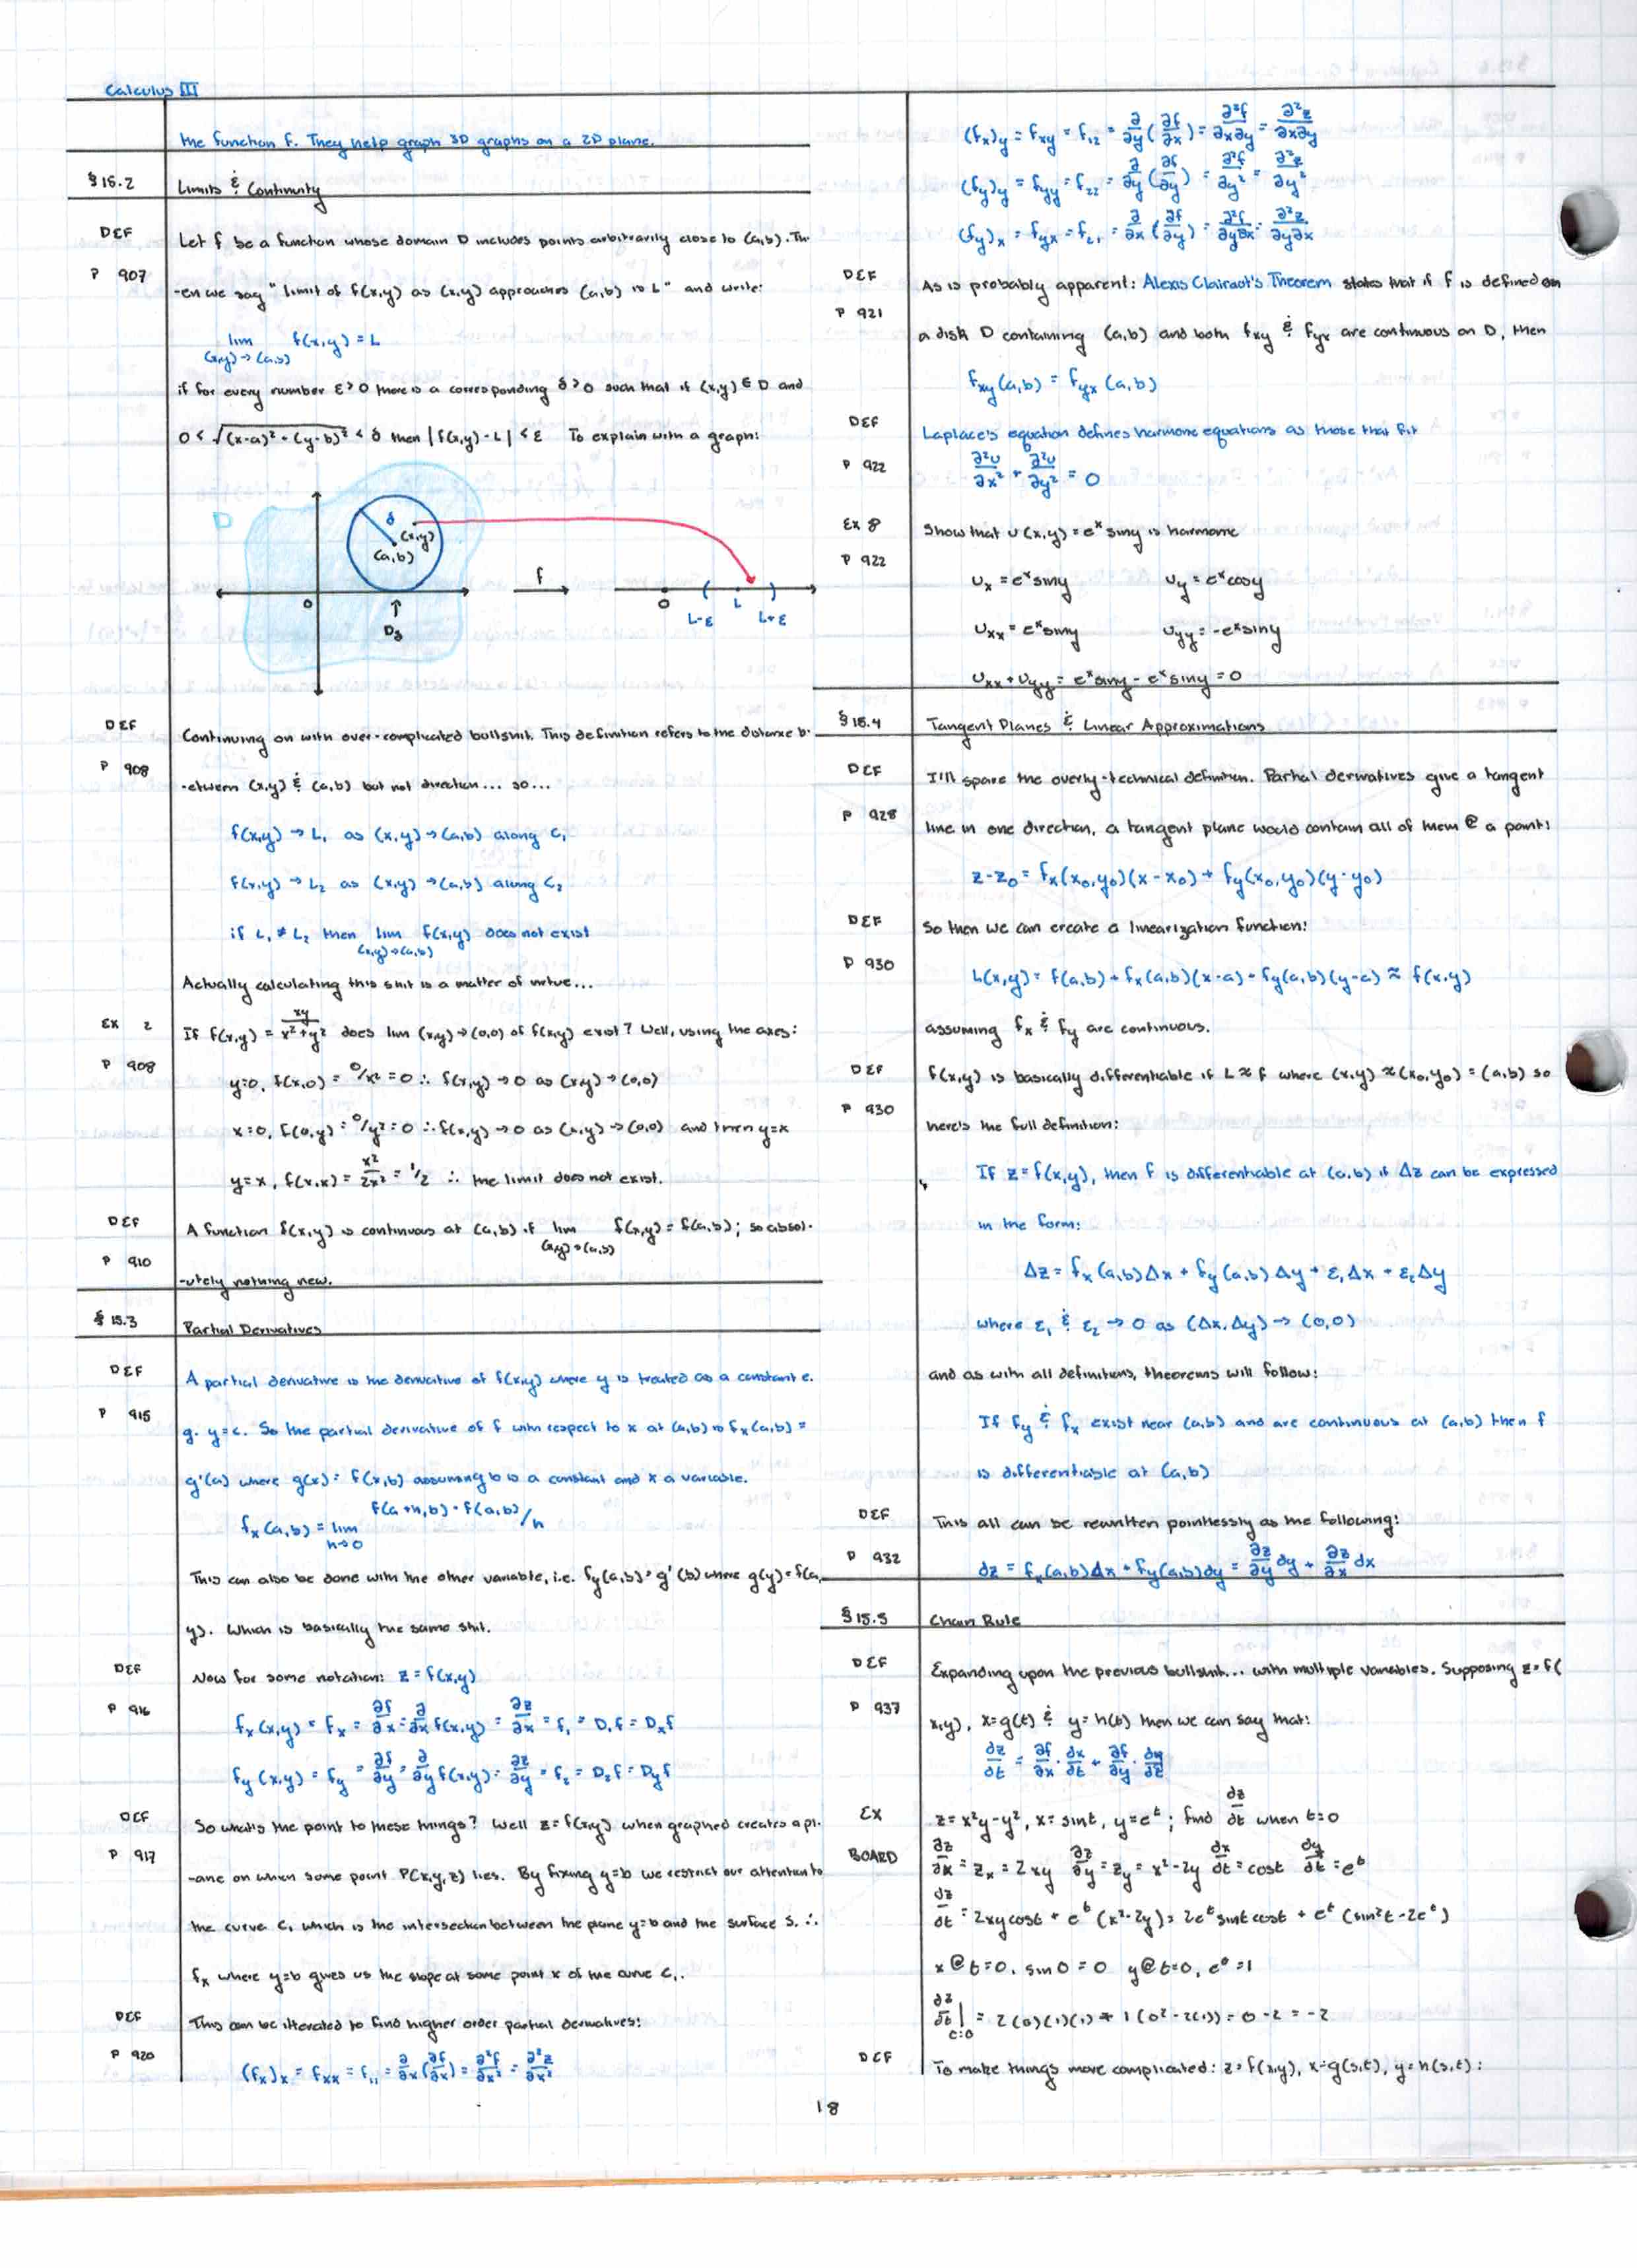 Calculus III
the function f. They help graph 3D graphs on a 2D plane.
§ 15.2 Limits & Continuity
DEF Let f be a function whose domain D includes points arbitrarily close to (a,b). Th-
P 907 -en we say "limit of f(x,y) as (x,y) approaches (a,b) is L" and write:
lim f(x,y) = L
(x,y)→(a,b)
if for every number ε > 0 there is a corresponding δ > 0 such that if (x,y) ∈ D and
0 < √(x-a)² + (y-b)² < δ then |f(x,y) - L| < ε To explain with a graph:
D
δ
(x,y)
(a,b)
f
0
0
L
L-ε
L+ε
↑
Dδ
DEF Continuing on with over-complicated bullshit. This definition refers to the distance b-
P 908 -etween (x,y) & (a,b) but not direction... so...
f(x,y) → L₁ as (x,y) → (a,b) along C₁
f(x,y) → L₂ as (x,y) → (a,b) along C₂
if L₁ ≠ L₂ then lim f(x,y) does not exist
(x,y)→(a,b)
Actually calculating this shit is a matter of virtue...
EX 2 If f(x,y) = xy/x²+y² does lim (x,y)→(0,0) of f(x,y) exist? Well, using the axes:
P 908 y=0, f(x,0) = 0/x² = 0 ∴ f(x,y) → 0 as (x,y) → (0,0)
x=0, f(0,y) = 0/y² = 0 ∴ f(x,y) → 0 as (x,y) → (0,0) and then y=x
y=x, f(x,x) = x²/2x² = 1/2 ∴ the limit does not exist.
DEF A function f(x,y) is continuous at (a,b) if lim f(x,y) = f(a,b); so absol-
(x,y)→(a,b)
P 910 -utely nothing new.
§ 15.3 Partial Derivatives
DEF A partial derivative is the derivative of f(x,y) where y is treated as a constant e.
P 915 g. y=c. So the partial derivative of f with respect to x at (a,b) is fx(a,b) =
g'(a) where g(x) = f(x,b) assuming b is a constant and x a variable.
fx(a,b) = lim f(a+h,b) - f(a,b)/h
h→0
This can also be done with the other variable, i.e. fy(a,b) = g'(b) where g(y) = f(a,
y). Which is basically the same shit.
DEF Now for some notation: z = f(x,y)
P 916 fx(x,y) = fx = ∂f/∂x = ∂/∂x f(x,y) = ∂z/∂x = f₁ = D₁f = Dxf
fy(x,y) = fy = ∂f/∂y = ∂/∂y f(x,y) = ∂z/∂y = f₂ = D₂f = Dyf
DEF So what's the point to these things? Well z = f(x,y) when graphed creates a pl-
P 917 -ane on when some point P(x,y,z) lies. By fixing y=b we restrict our attention to
the curve C₁ which is the intersection between the plane y=b and the surface S. ∴
fx where y=b gives us the slope at some point x of the curve C₁.
DEF This can be itterated to find higher order partial derivatives:
P 920 (fx)x = fxx = f₁₁ = ∂/∂x (∂f/∂x) = ∂²f/∂x² = ∂²z/∂x²
(fx)y = fxy = f₁₂ = ∂/∂y (∂f/∂x) = ∂²f/∂x∂y = ∂²z/∂x∂y
(fy)y = fyy = f₂₂ = ∂/∂y (∂f/∂y) = ∂²f/∂y² = ∂²z/∂y²
(fy)x = fyx = f₂₁ = ∂/∂x (∂f/∂y) = ∂²f/∂y∂x = ∂²z/∂y∂x
DEF As is probably apparent: Alexis Clairaut's Theorem states that if f is defined on
P 921 a disk D containing (a,b) and both fxy & fyx are continuous on D, then
fxy(a,b) = fyx(a,b)
DEF Laplace's equation defines harmonic equations as those that fit
P 922 ∂²u/∂x² + ∂²u/∂y² = 0
EX 8 Show that u(x,y) = eˣ siny is harmonic
P 922 ux = eˣsiny uy = eˣcosy
uxx = eˣsiny uyy = -eˣsiny
uxx + uyy = eˣsiny - eˣsiny = 0
§ 15.4 Tangent Planes & Linear Approximations
DEF I'll spare the overly-technical definition. Partial derivatives give a tangent
P 928 line in one direction, a tangent plane would contain all of them @ a point:
z-z₀ = fx(x₀,y₀)(x-x₀) + fy(x₀,y₀)(y-y₀)
DEF So then we can create a linearization function:
P 930 L(x,y) = f(a,b) + fx(a,b)(x-a) + fy(a,b)(y-a) ≈ f(x,y)
assuming fx & fy are continuous.
DEF f(x,y) is basically differentiable if L ≈ f where (x,y) ≈ (x₀,y₀) = (a,b) so
P 930 here's the full definition:
If z = f(x,y), then f is differentiable at (a,b) if Δz can be expressed
in the form:
Δz = fx(a,b)Δx + fy(a,b)Δy + ε₁Δx + ε₂Δy
where ε₁ & ε₂ → 0 as (Δx,Δy) → (0,0)
and as with all definitions, theorems will follow:
If fy & fx exist near (a,b) and are continuous at (a,b) then f
is differentiable at (a,b)
DEF This all can be rewritten pointlessly as the following:
P 932 dz = fx(a,b)Δx + fy(a,b)dy = ∂z/∂y dy + ∂z/∂x dx
§ 15.5 Chain Rule
DEF Expanding upon the previous bullshit... with multiple variables. Supposing z = f(
P 937 x,y), x=g(t) & y=h(t) then we can say that:
dz/dt = ∂f/∂x · dx/dt + ∂f/∂y · dy/dt
EX z = x²y - y², x = sint, y = eᵗ; find dz/dt when t=0
BOARD ∂z/∂x = zx = 2xy ∂z/∂y = zy = x²-2y dx/dt = cost dy/dt = eᵗ
dz/dt = 2xycost + eᵗ(x²-2y) = 2eᵗsintcost + eᵗ(sin²t-2eᵗ)
x@t=0, sin0 = 0 y@t=0, e⁰ = 1
dz/dt|t=0 = 2(0)(1)(1) + 1(0²-2(1)) = 0-2 = -2
DEF To make things more complicated: z = f(x,y), x=g(s,t), y=h(s,t):
18